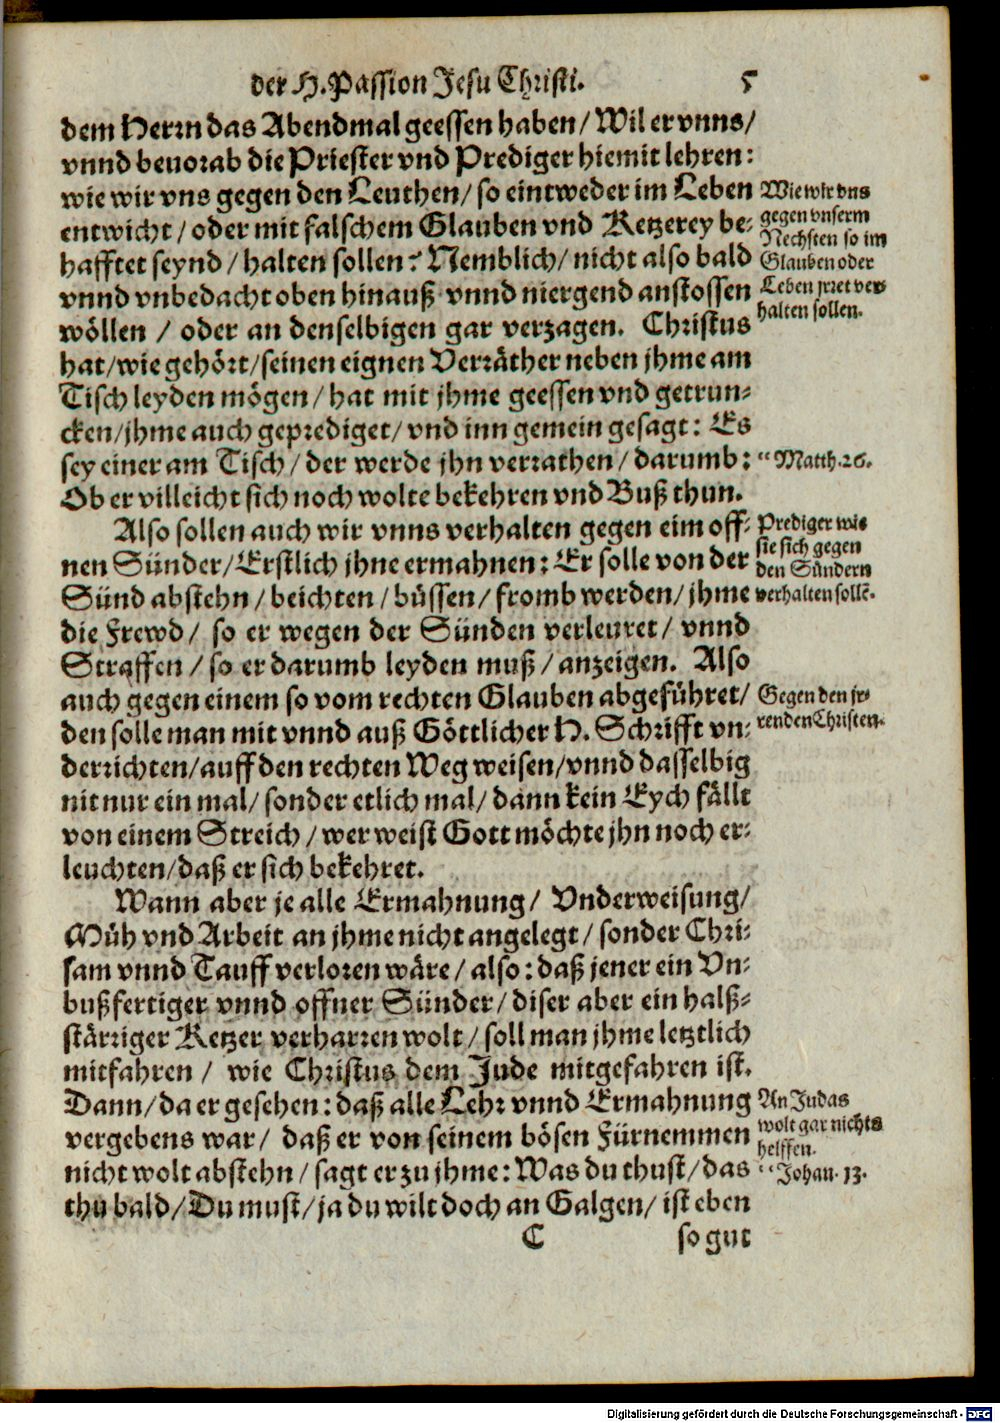 der H. Passion Jesu Christi. 5
dem Herrn das Abendmal geessen haben / Wil er vnns /
vnnd beuorab die Priester vnd Prediger hiemit lehren:
wie wir vns gegen den Leuthen / so eintweder im Leben
entwicht / oder mit falschem Glauben vnd Ketzerey be-
hafftet seynd / halten sollen: Nemblich / nicht also bald
vnnd vnbedacht oben hinauß vnnd niergend anstossen
wöllen / oder an denselbigen gar verzagen. Christus
hat / wie gehört / seinen eignen Verräther neben jhme am
Tisch leyden mögen / hat mit jhme geessen vnd getrun-
cken / jhme auch geprediget / vnd inn gemein gesagt: Es
sey einer am Tisch / der werde jhn verrathen / darumb:
Ob er villeicht sich noch wolte bekehren vnd Buß thun.
Also sollen auch wir vnns verhalten gegen eim off-
nen Sünder / Erstlich jhne ermahnen: Er solle von der
Sünd abstehn / beichten / büssen / fromb werden / jhme
die Frewd / so er wegen der Sünden verleuret / vnnd
Straffen / so er darumb leyden muß / anzeigen. Also
auch gegen einem so vom rechten Glauben abgeführet /
den solle man mit vnnd auß Göttlicher H. Schrifft vn-
derrichten / auff den rechten Weg weisen / vnnd dasselbig
nit nur ein mal / sonder etlich mal / dann kein Eych fällt
von einem Streich / wer weist Gott möchte jhn noch er-
leuchten / daß er sich bekehret.
Wann aber je alle Ermahnung / Vnderweisung /
Müh vnd Arbeit an jhme nicht angelegt / sonder Chri-
sam vnnd Tauff verloren wäre / also: daß jener ein Vn-
bußfertiger vnnd offner Sünder / diser aber ein halß-
stärriger Ketzer verharren wolt / soll man jhme letztlich
mitfahren / wie Christus dem Jude mitgefahren ist.
Dann / da er gesehen: daß alle Lehr vnnd Ermahnung
vergebens war / daß er von seinem bösen Fürnemmen
nicht wolt abstehn / sagt er zu jhme: Was du thust / das
thu bald / Du must / ja du wilt doch an Galgen / ist eben
C so gut
Wie wir vns
gegen vnserm
Nechsten so im
Glauben oder
Leben jrret ver-
halten sollen.
“ Matth. 26.
Prediger wie
sie sich gegen
den Sündern
verhalten sollē.
Gegen den jr-
renden Christen.
An Judas
wolt gar nichts
helffen.
“ Johan. 13.
Digitalisierung gefördert durch die Deutsche Forschungsgemeinschaft - DFG